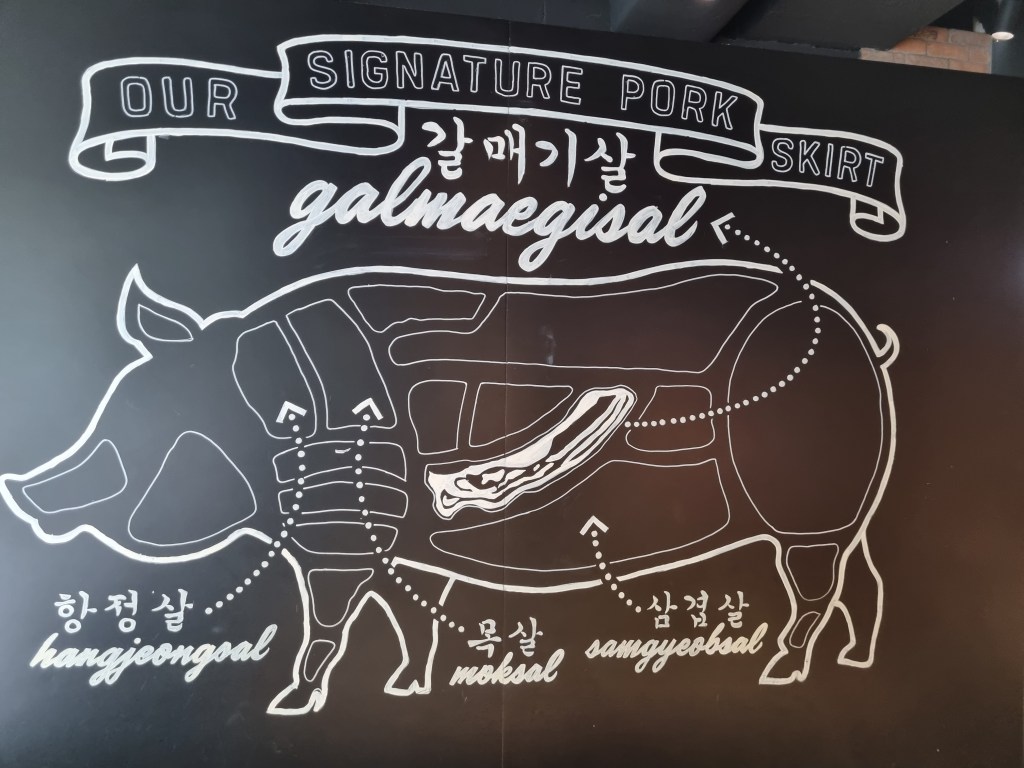 OUR SIGNATURE PORK SKIRT
갈매기살
galmaegisal
항정살
hangjeongsal
목살
moksal
삼겹살
samgyeobsal